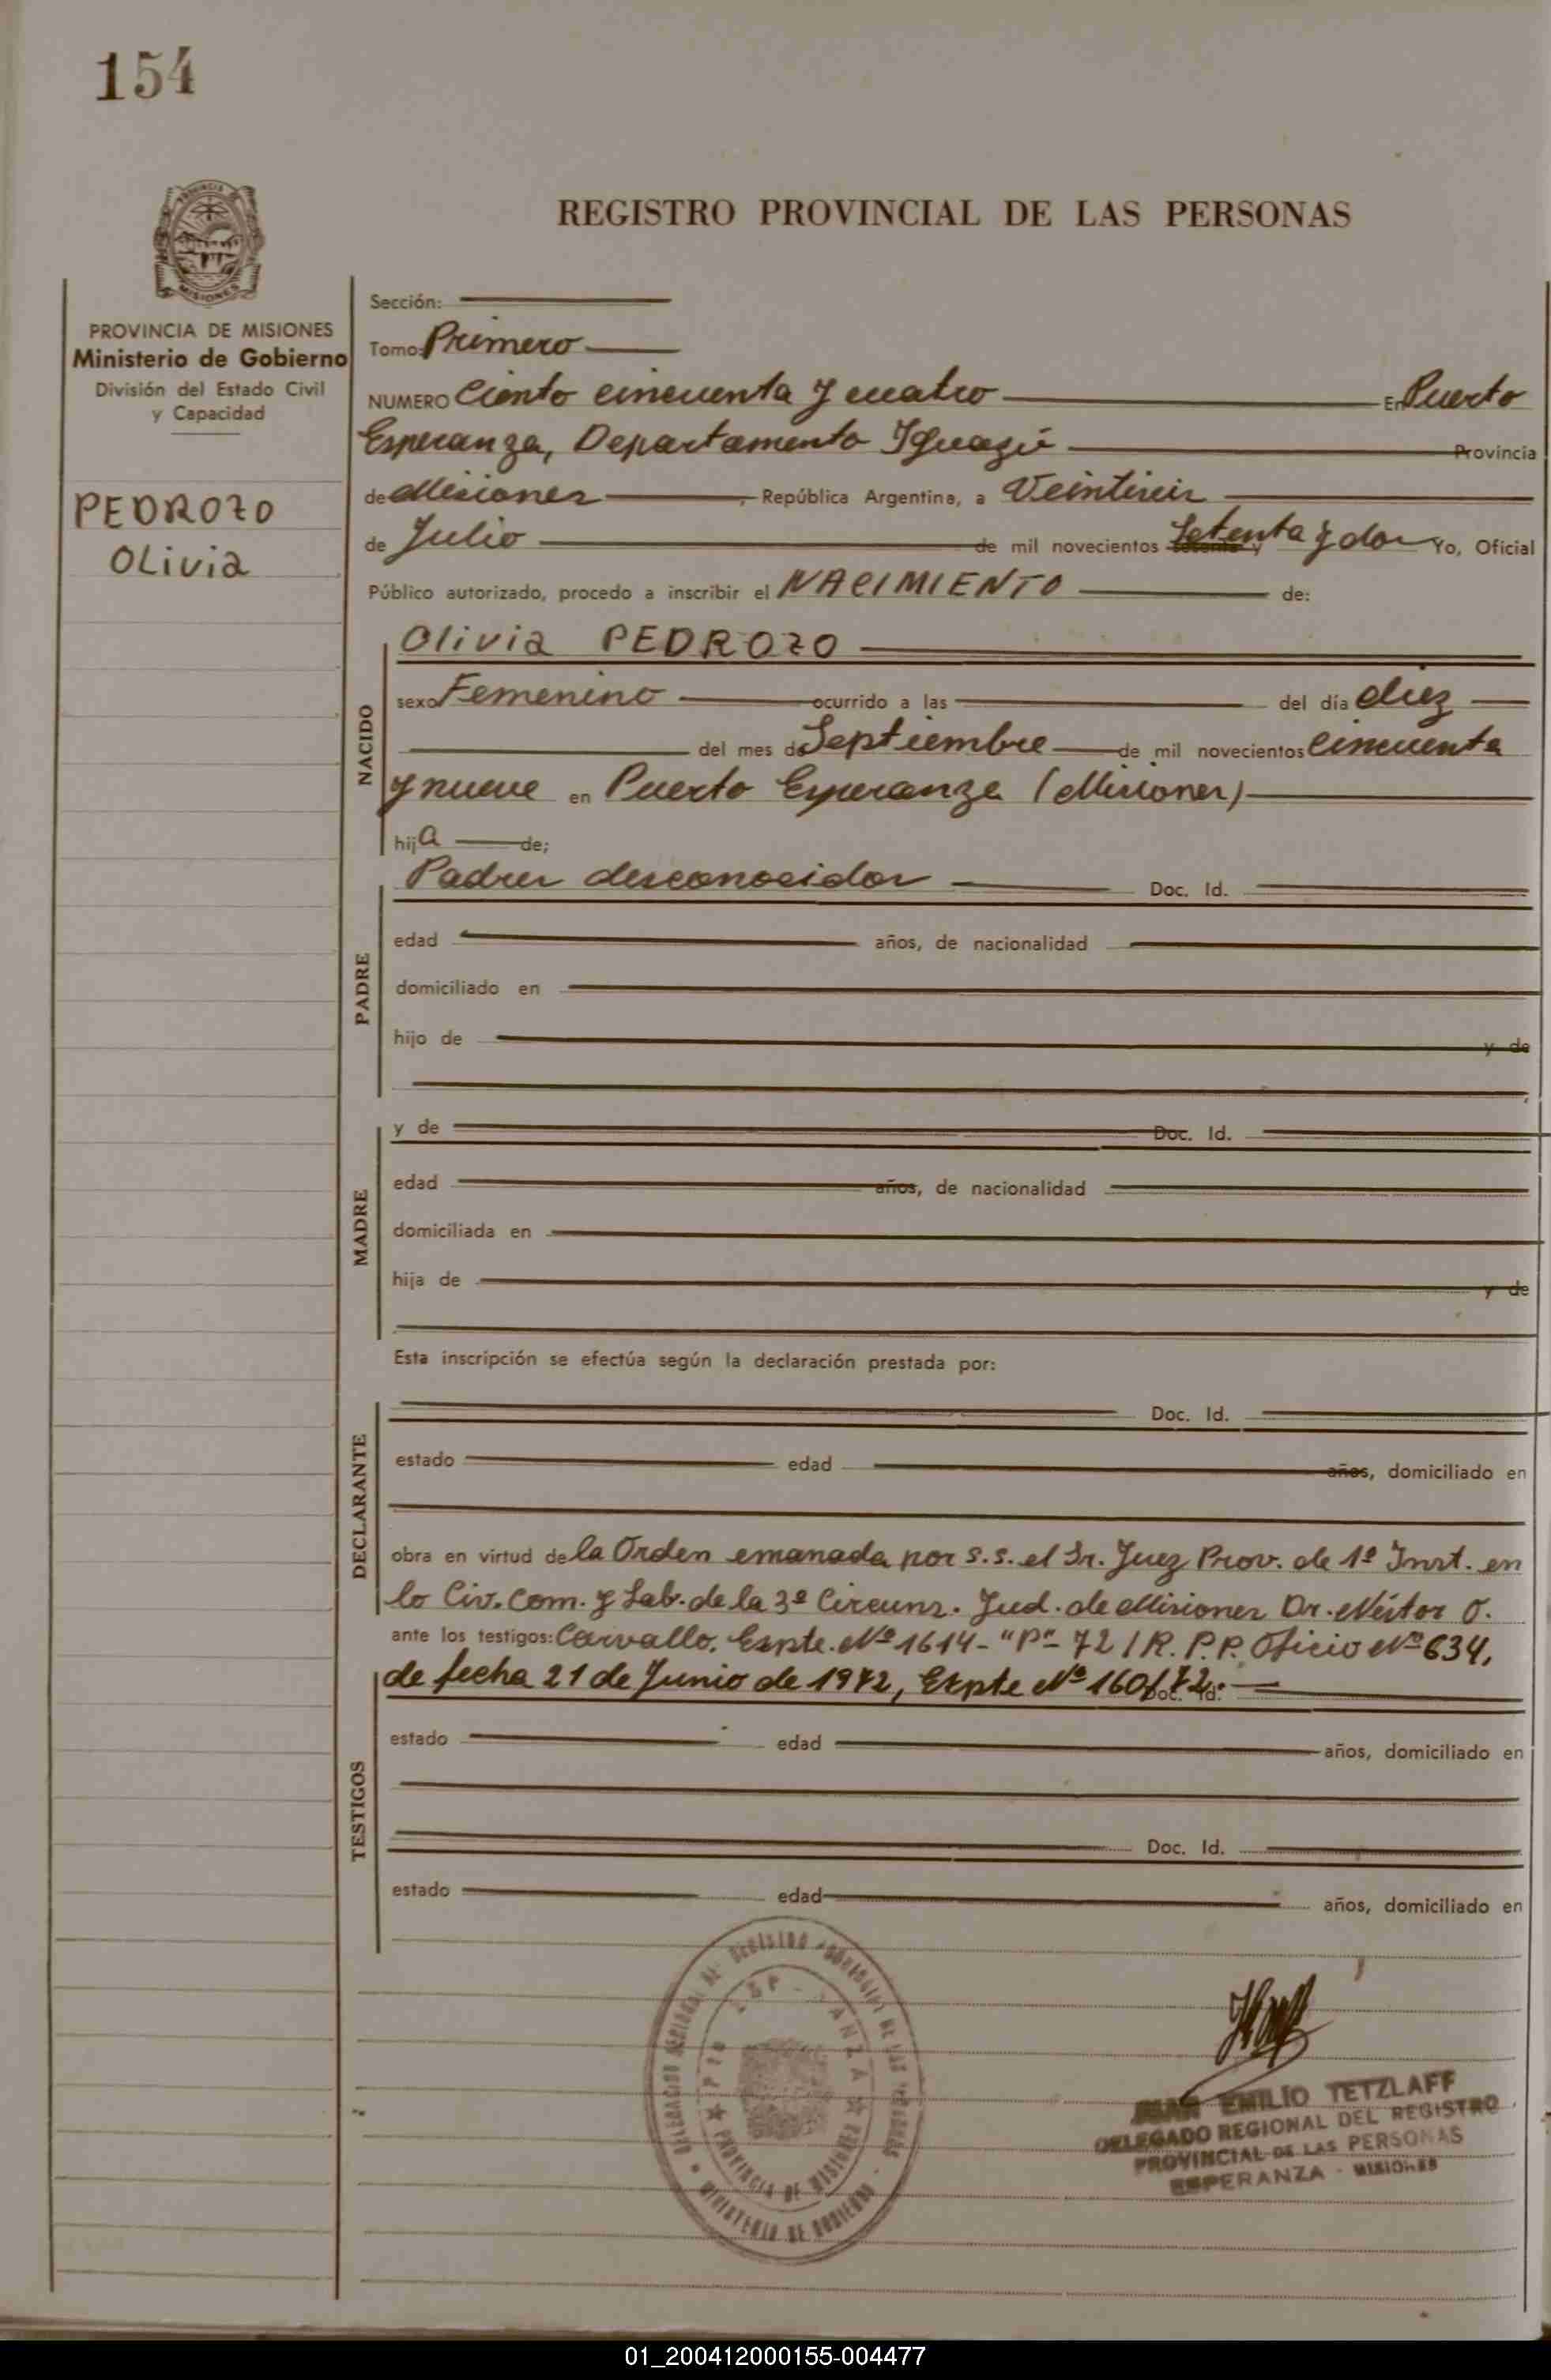 154
REGISTRO PROVINCIAL DE LAS PERSONAS
MISIONES
PROVINCIA DE MISIONES
Ministerio de Gobierno
División del Estado Civil
y Capacidad
PEDROZO
Olivia
Sección:
Tomo: Primero
NUMERO Ciento cincuenta y cuatro En Puerto
Esperanza, Departamento Iguazú Provincia
de Misiones, República Argentina, a Veintiseis
de Julio de mil novecientos setenta y Setenta y dos Yo, Oficial
Público autorizado, procedo a inscribir el NACIMIENTO de:
NACIDO
Olivia PEDROZO
sexo Femenino ocurrido a las del día diez
del mes de Septiembre de mil novecientos Cincuenta
y nueve en Puerto Esperanza (Misiones)
hija de;
PADRE
Padres desconocidos Doc. Id.
edad años, de nacionalidad
domiciliado en
hijo de y de
MADRE
y de Doc. Id.
edad años, de nacionalidad
domiciliada en
hija de y de
Esta inscripción se efectúa según la declaración prestada por:
DECLARANTE
Doc. Id.
estado edad años, domiciliado en
obra en virtud de la Orden emanada por S.S. el Sr. Juez Prov. de 1º Inst. en
lo Civ. Com. y Lab. de la 3ª Circuns. Jud. de Misiones Dr. Néstor O.
ante los testigos: Carvallo. Expte. Nº 1614-"P"- 72/R.P.P. Oficio Nº 634,
de fecha 21 de Junio de 1972, Expte Nº 160/72. Doc. Id.
TESTIGOS
estado edad años, domiciliado en
Doc. Id.
estado edad años, domiciliado en
DELEGACION REGIONAL DEL REGISTRO PROVINCIAL DE LAS PERSONAS
MINISTERIO DE GOBIERNO
PTO ESPERANZA
PROVINCIA DE MISIONES
JUAN EMILIO TETZLAFF
DELEGADO REGIONAL DEL REGISTRO
PROVINCIAL DE LAS PERSONAS
ESPERANZA - MISIONES
01_200412000155-004477